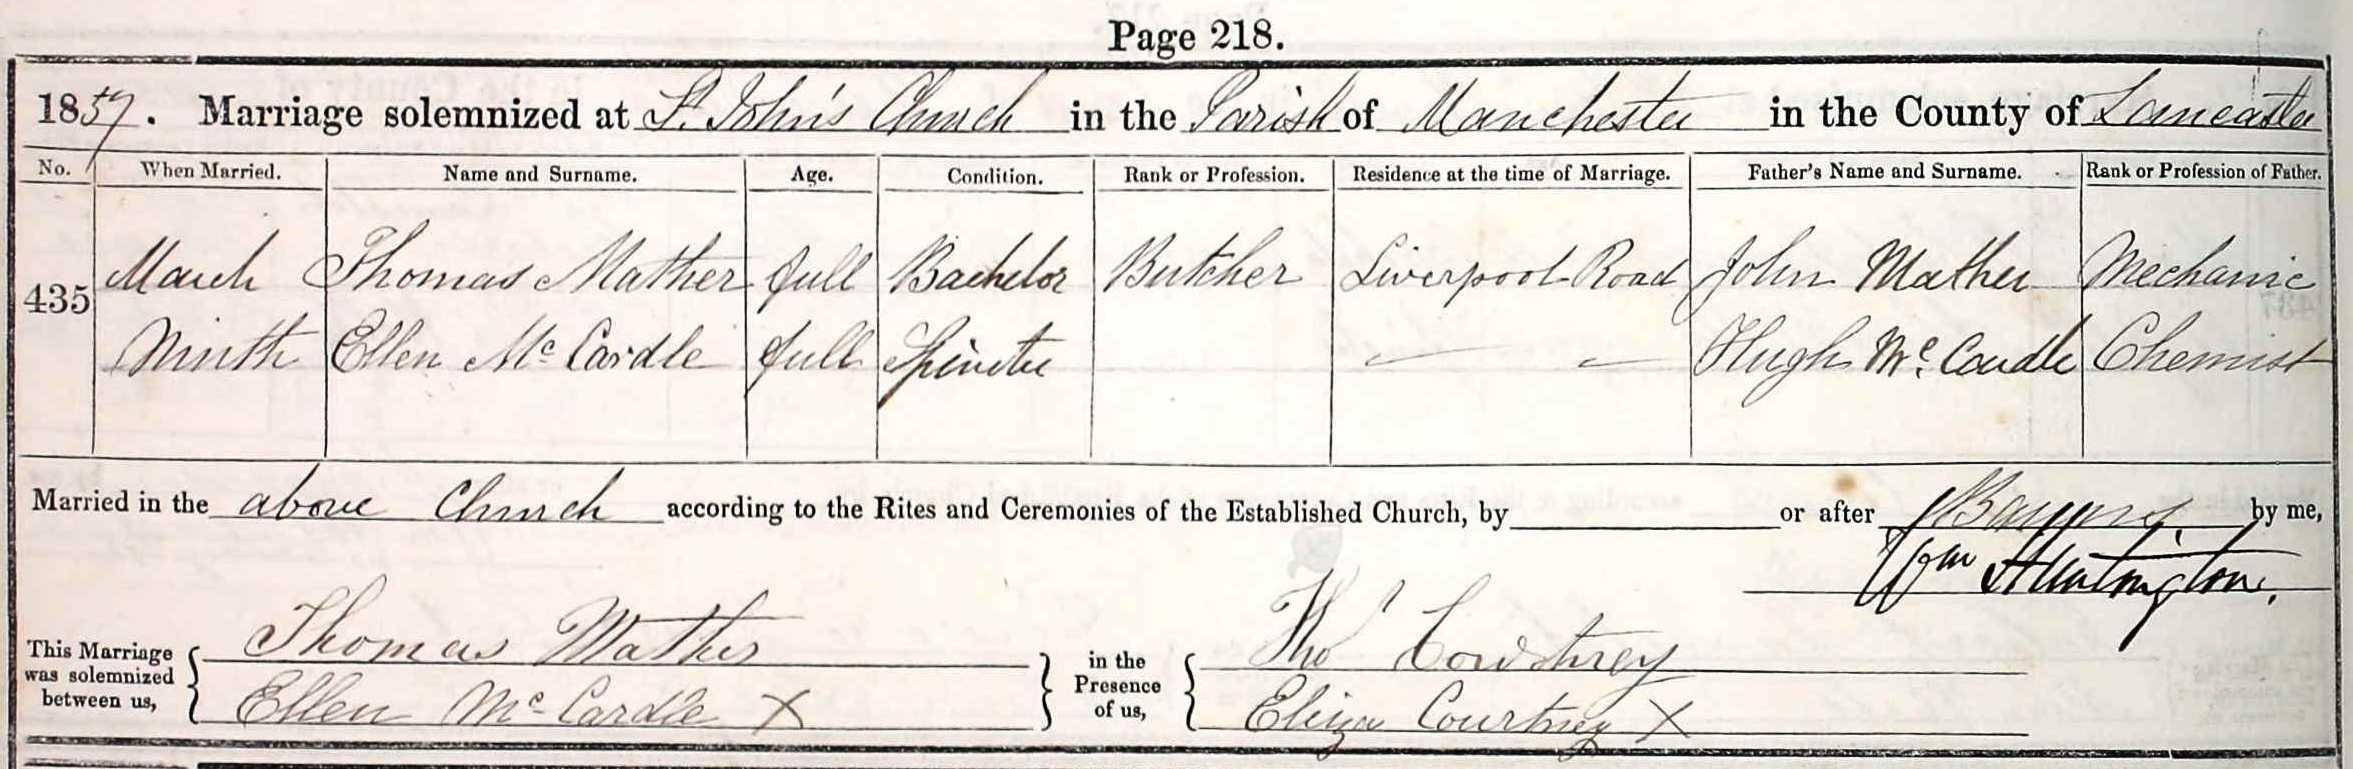 Page 218.
1857. Marriage solemnized at St. John's Church in the Parish of Manchester in the County of Lancaster
No. When Married. Name and Surname. Age. Condition. Rank or Profession. Residence at the time of Marriage. Father's Name and Surname. Rank or Profession of Father.
435 March Thomas Mather full Bachelor Butcher Liverpool Road John Mather Mechanic
Ninth Ellen Mc Cardle full Spinster — — Hugh Mc. Cardle Chemist
Married in the above Church according to the Rites and Ceremonies of the Established Church, by or after Banns. by me,
Wm Huntington.
This Marriage was solemnized between us, Thomas Mather in the Presence of us, Thos Courtney
Ellen Mc Cardle X Eliza Courtney X